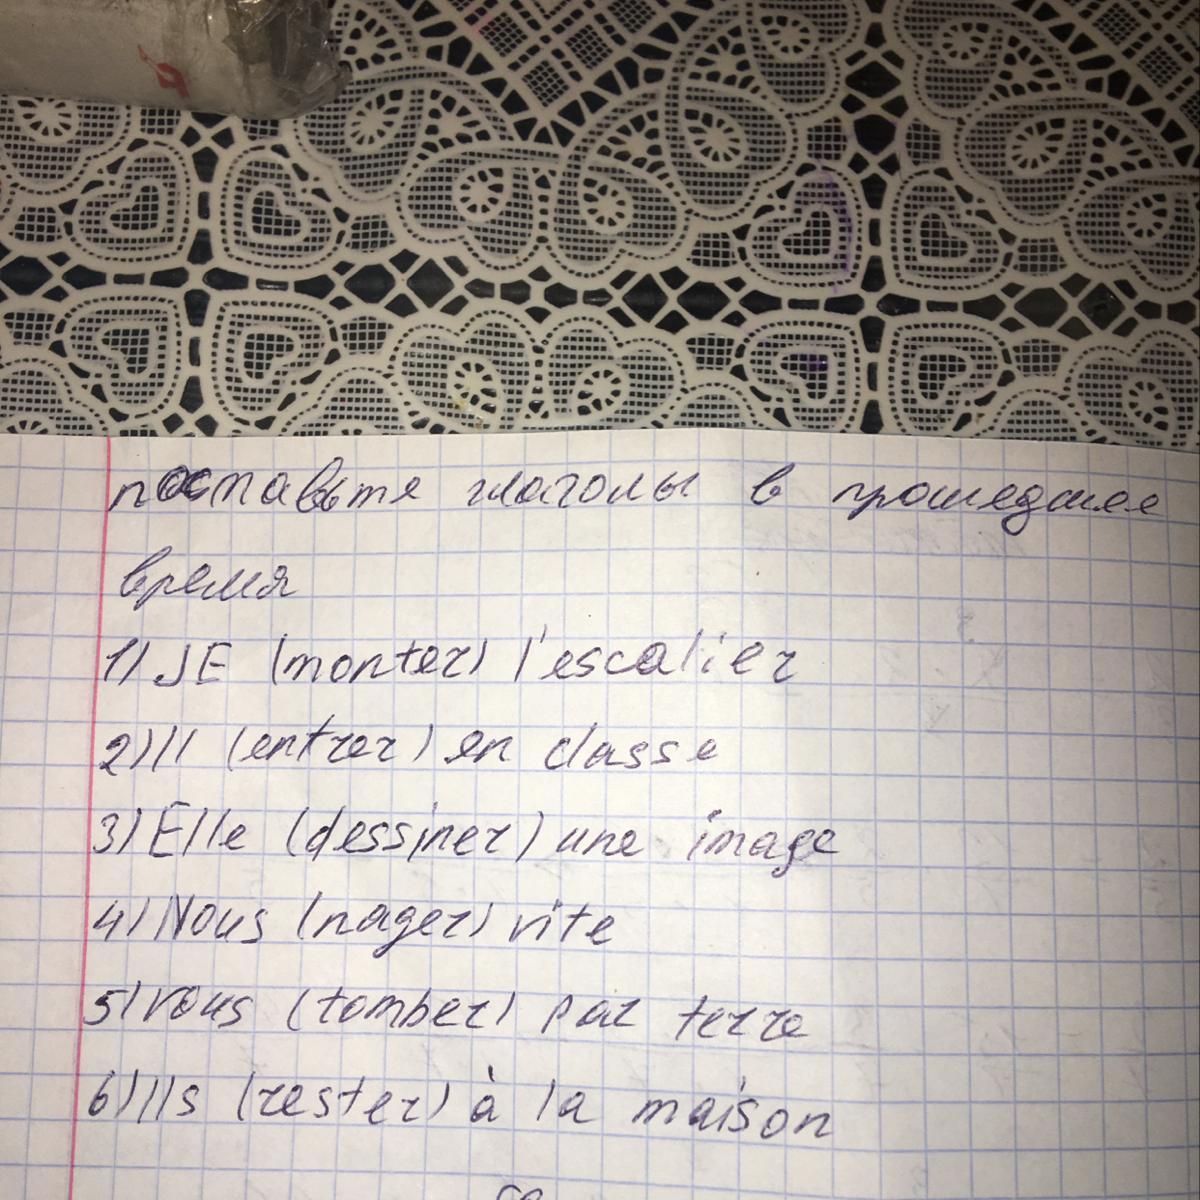 поставьте глаголы в прошедшее
время
1) JE (monter) l'escalier
2) Il (entrer) en classe
3) Elle (dessiner) une image
4) Nous (nager) vite
5) vous (tomber) par terre
6) Ils (rester) à la maison